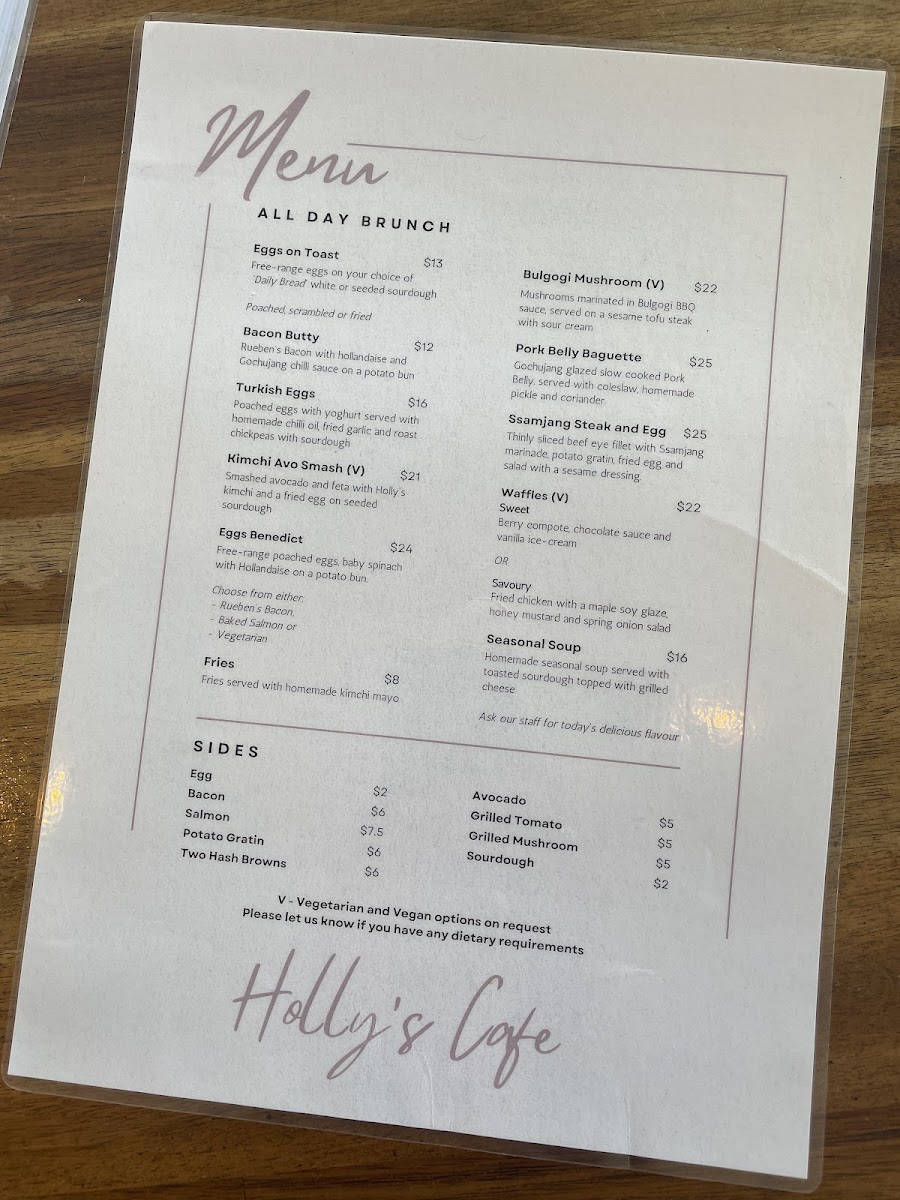 Menu
ALL DAY BRUNCH
Eggs on Toast $13
Free-range eggs on your choice of
'Daily Bread' white or seeded sourdough
Poached, scrambled or fried
Bacon Butty $12
Rueben's Bacon with hollandaise and
Gochujang chilli sauce on a potato bun
Turkish Eggs $16
Poached eggs with yoghurt served with
homemade chilli oil, fried garlic and roast
chickpeas with sourdough
Kimchi Avo Smash (V) $21
Smashed avocado and feta with Holly's
kimchi and a fried egg on seeded
sourdough
Eggs Benedict $24
Free-range poached eggs, baby spinach
with Hollandaise on a potato bun.
Choose from either:
- Rueben's Bacon,
- Baked Salmon or
- Vegetarian
Fries $8
Fries served with homemade kimchi mayo
Bulgogi Mushroom (V) $22
Mushrooms marinated in Bulgogi BBQ
sauce, served on a sesame tofu steak
with sour cream
Pork Belly Baguette $25
Gochujang glazed slow cooked Pork
Belly, served with coleslaw, homemade
pickle and coriander.
Ssamjang Steak and Egg $25
Thinly sliced beef eye fillet with Ssamjang
marinade, potato gratin, fried egg and
salad with a sesame dressing.
Waffles (V) $22
Sweet
Berry compote, chocolate sauce and
vanilla ice-cream
OR
Savoury
Fried chicken with a maple soy glaze,
honey mustard and spring onion salad
Seasonal Soup $16
Homemade seasonal soup served with
toasted sourdough topped with grilled
cheese
Ask our staff for today's delicious flavour
SIDES
Egg $2
Bacon $6
Salmon $7.5
Potato Gratin $6
Two Hash Browns $6
Avocado $5
Grilled Tomato $5
Grilled Mushroom $5
Sourdough $2
V - Vegetarian and Vegan options on request
Please let us know if you have any dietary requirements
Holly's Cafe